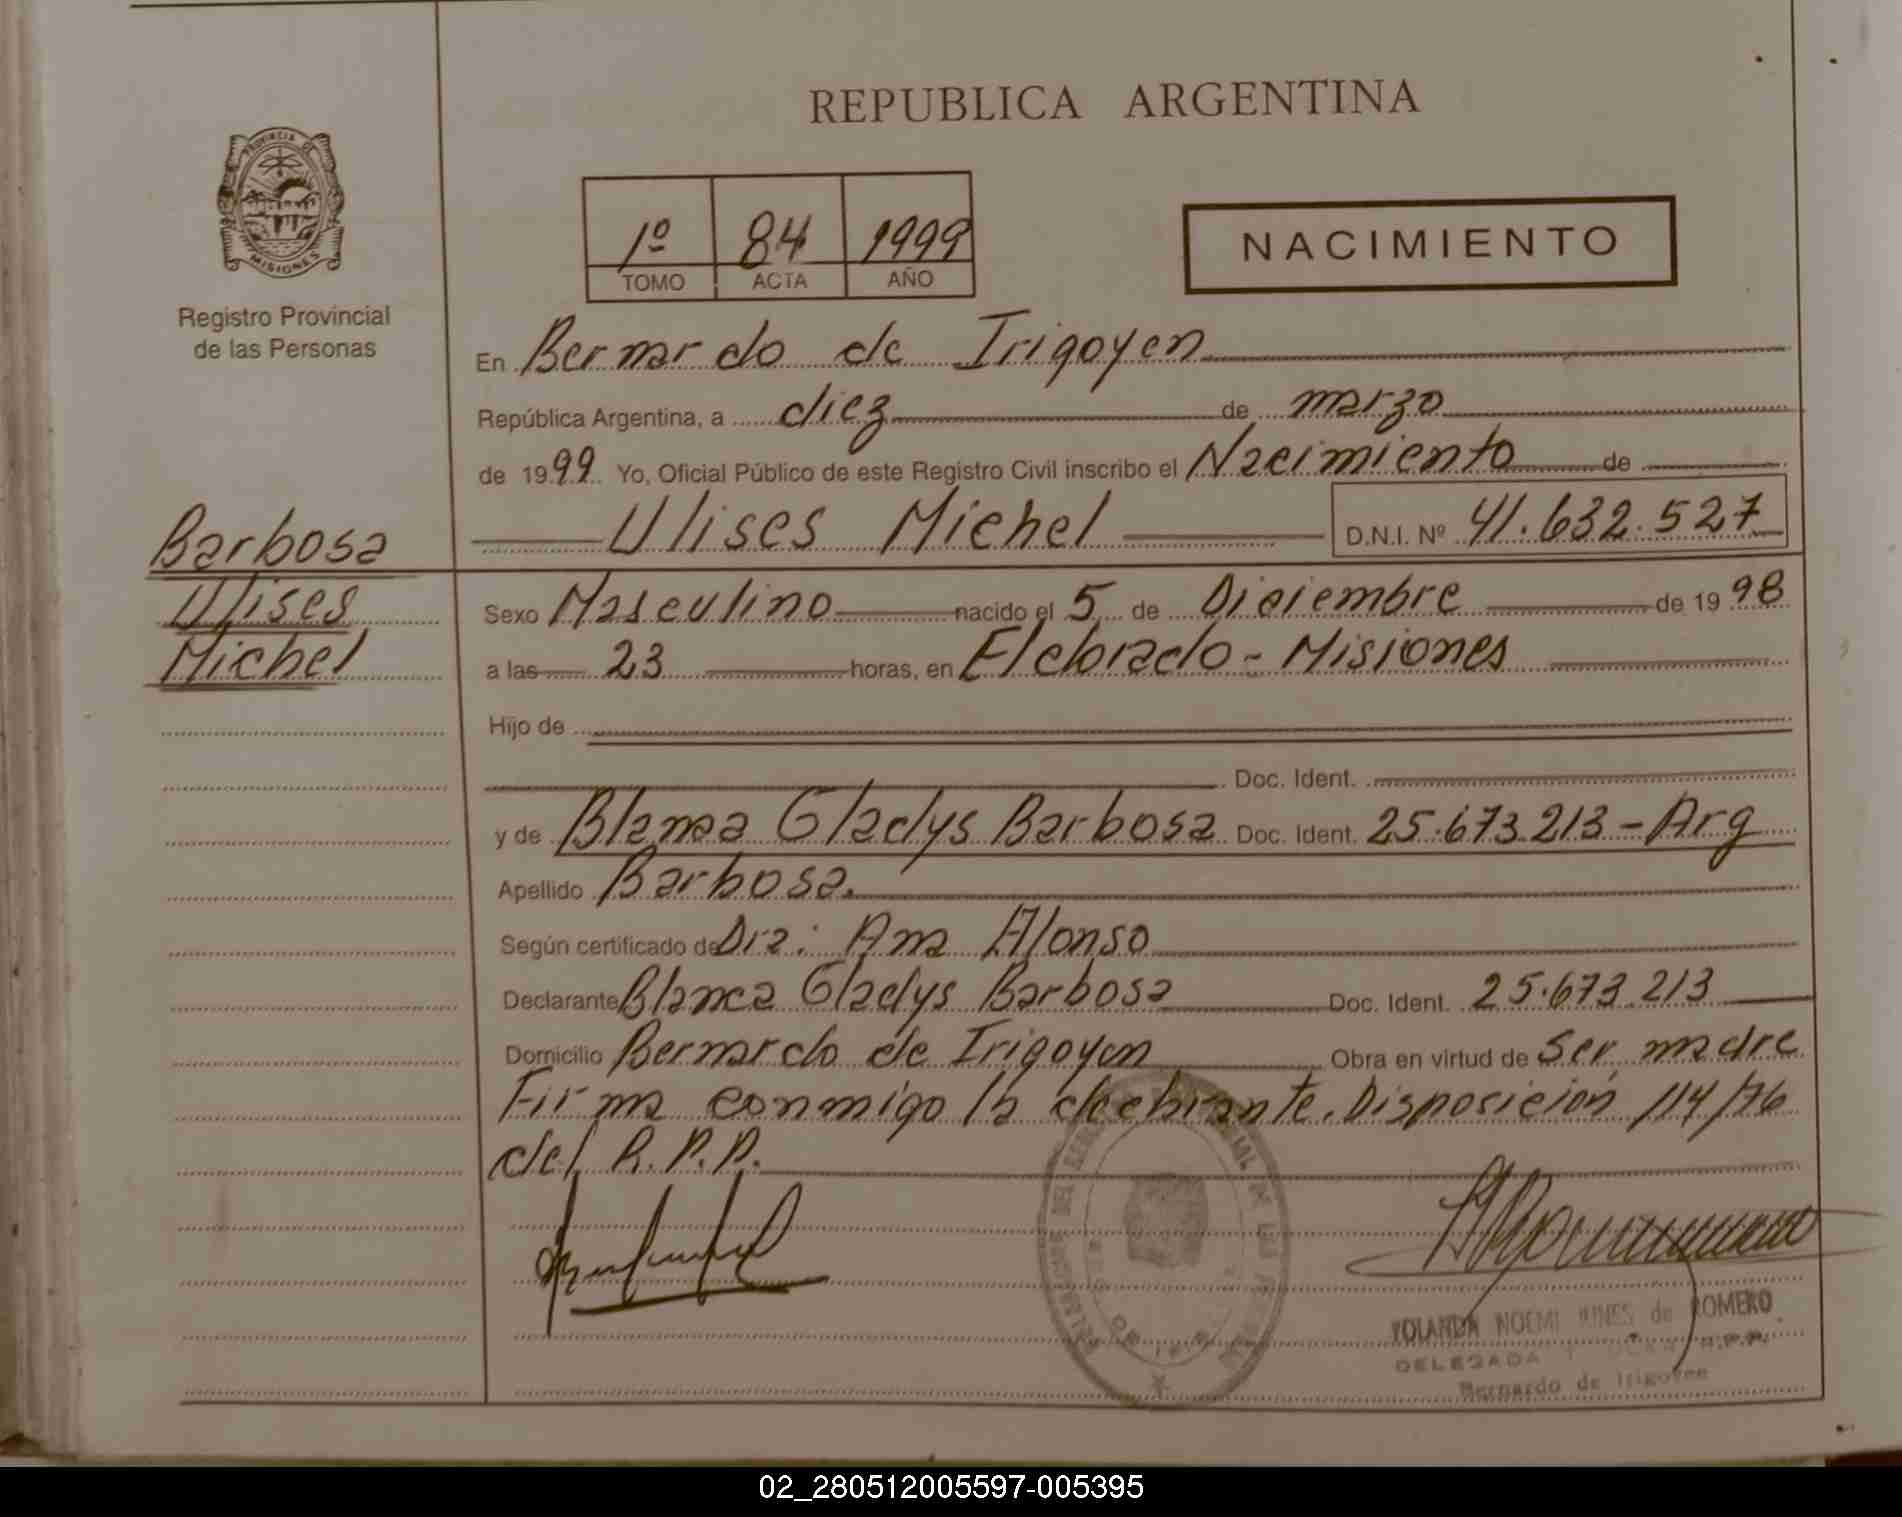 REPUBLICA ARGENTINA
PROVINCIA DE
MISIONES
Registro Provincial
de las Personas
1º 84 1999
TOMO ACTA AÑO
NACIMIENTO
En Bernardo de Irigoyen
República Argentina, a diez de marzo
de 1999 Yo, Oficial Público de este Registro Civil inscribo el Nacimiento de
Ulises Michel D.N.I. Nº 41.632.527
Barbosa
Ulises
Michel
Sexo Masculino nacido el 5 de Diciembre de 1998
a las 23 horas, en Eldorado - Misiones
Hijo de
Doc. Ident.
y de Blanca Gladys Barbosa Doc. Ident. 25.673.213 - Arg
Apellido Barbosa.
Según certificado de Dra: Ana Alonso
Declarante Blanca Gladys Barbosa Doc. Ident. 25.673.213
Domicilio Bernardo de Irigoyen Obra en virtud de ser madre
Firma conmigo la declarante. Disposición 114/76
del R.P.P.
YOLANDA NOEMI de ROMERO
DELEGADA R.P.P.
Bernardo de Irigoyen
02_280512005597-005395